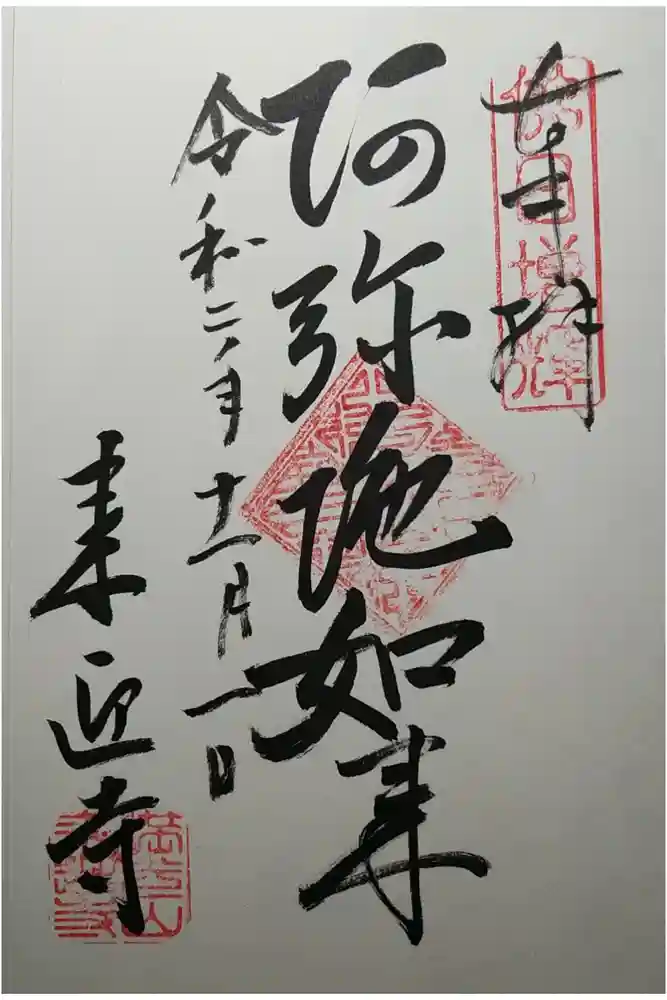 奉拝
佛日増輝
阿弥陀如来
令和二年十一月一日
来迎寺